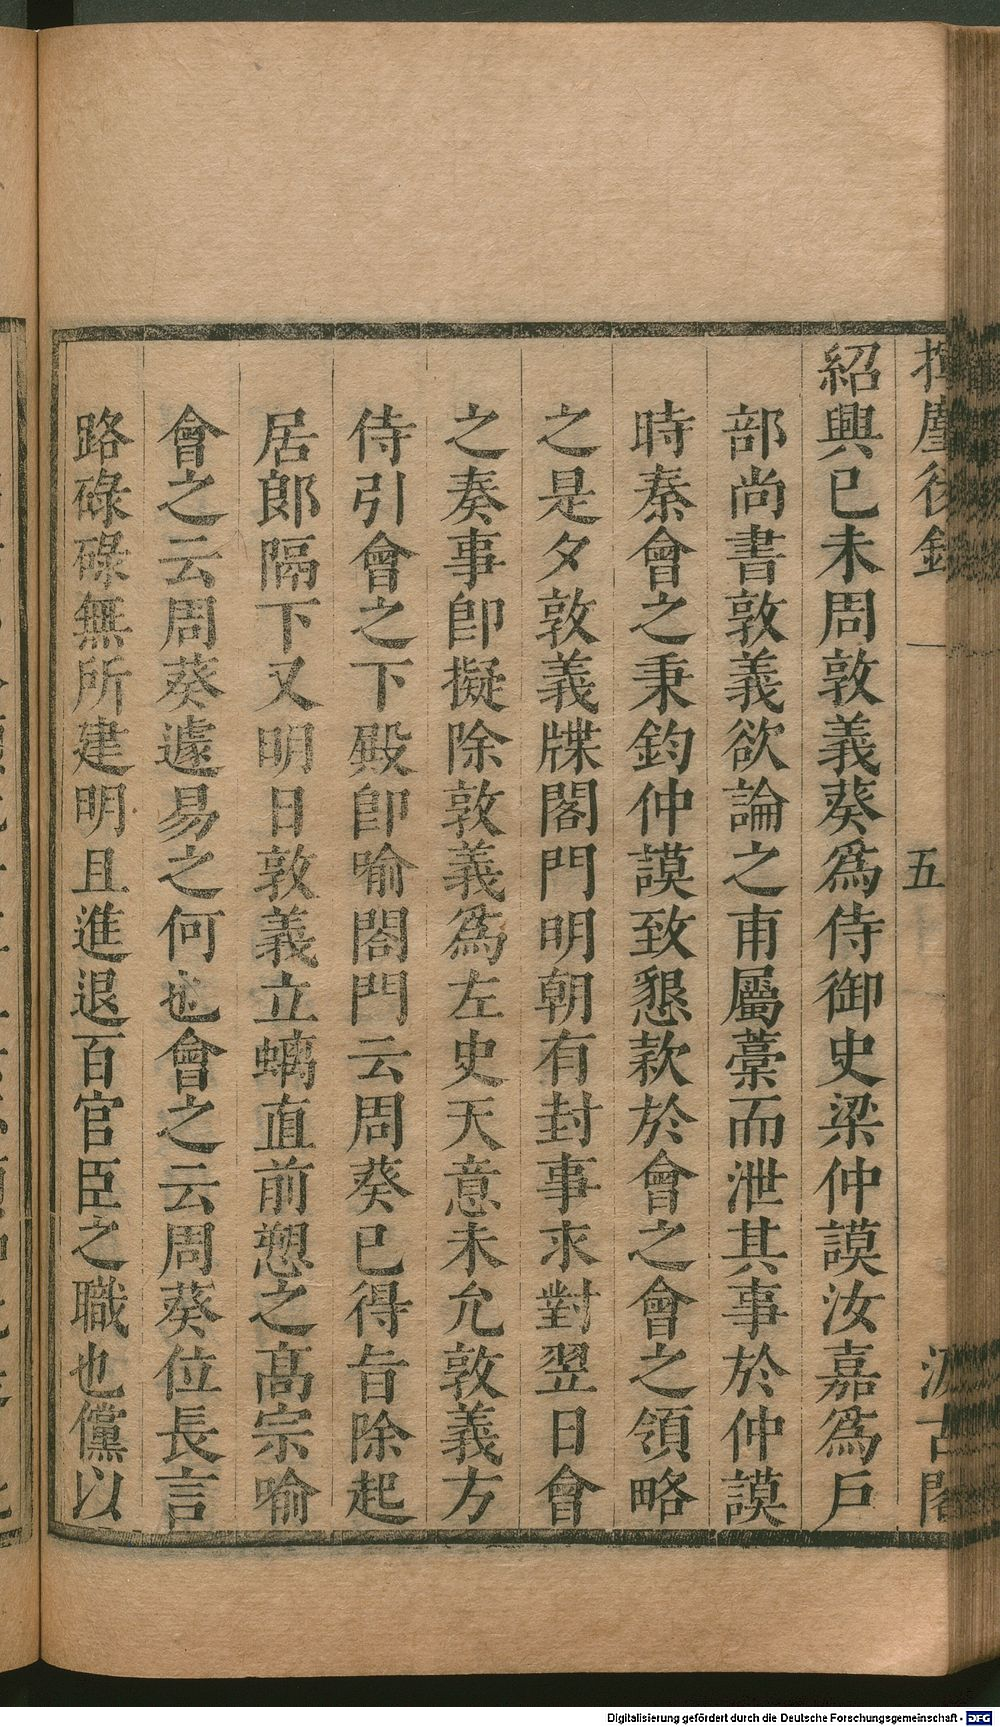 揮麈後錄　五　汲古閣
紹興已未周敦義葵爲侍御史梁仲謨汝嘉爲戶
部尚書敦義欲論之甫屬藁而泄其事於仲謨
時秦會之秉鈞仲謨致懇款於會之會之領略
之是夕敦義牒閤門明朝有封事求對翌日會
之奏事卽擬除敦義爲左史天意未允敦義方
侍引會之下殿卽喻閤門云周葵已得旨除起
居郎隔下又明日敦義立螭直前愬之高宗喻
會之云周葵遽易之何也會之云周葵位長言
路碌碌無所建明且進退百官臣之職也儻以
Digitalisierung gefördert durch die Deutsche Forschungsgemeinschaft - DFG